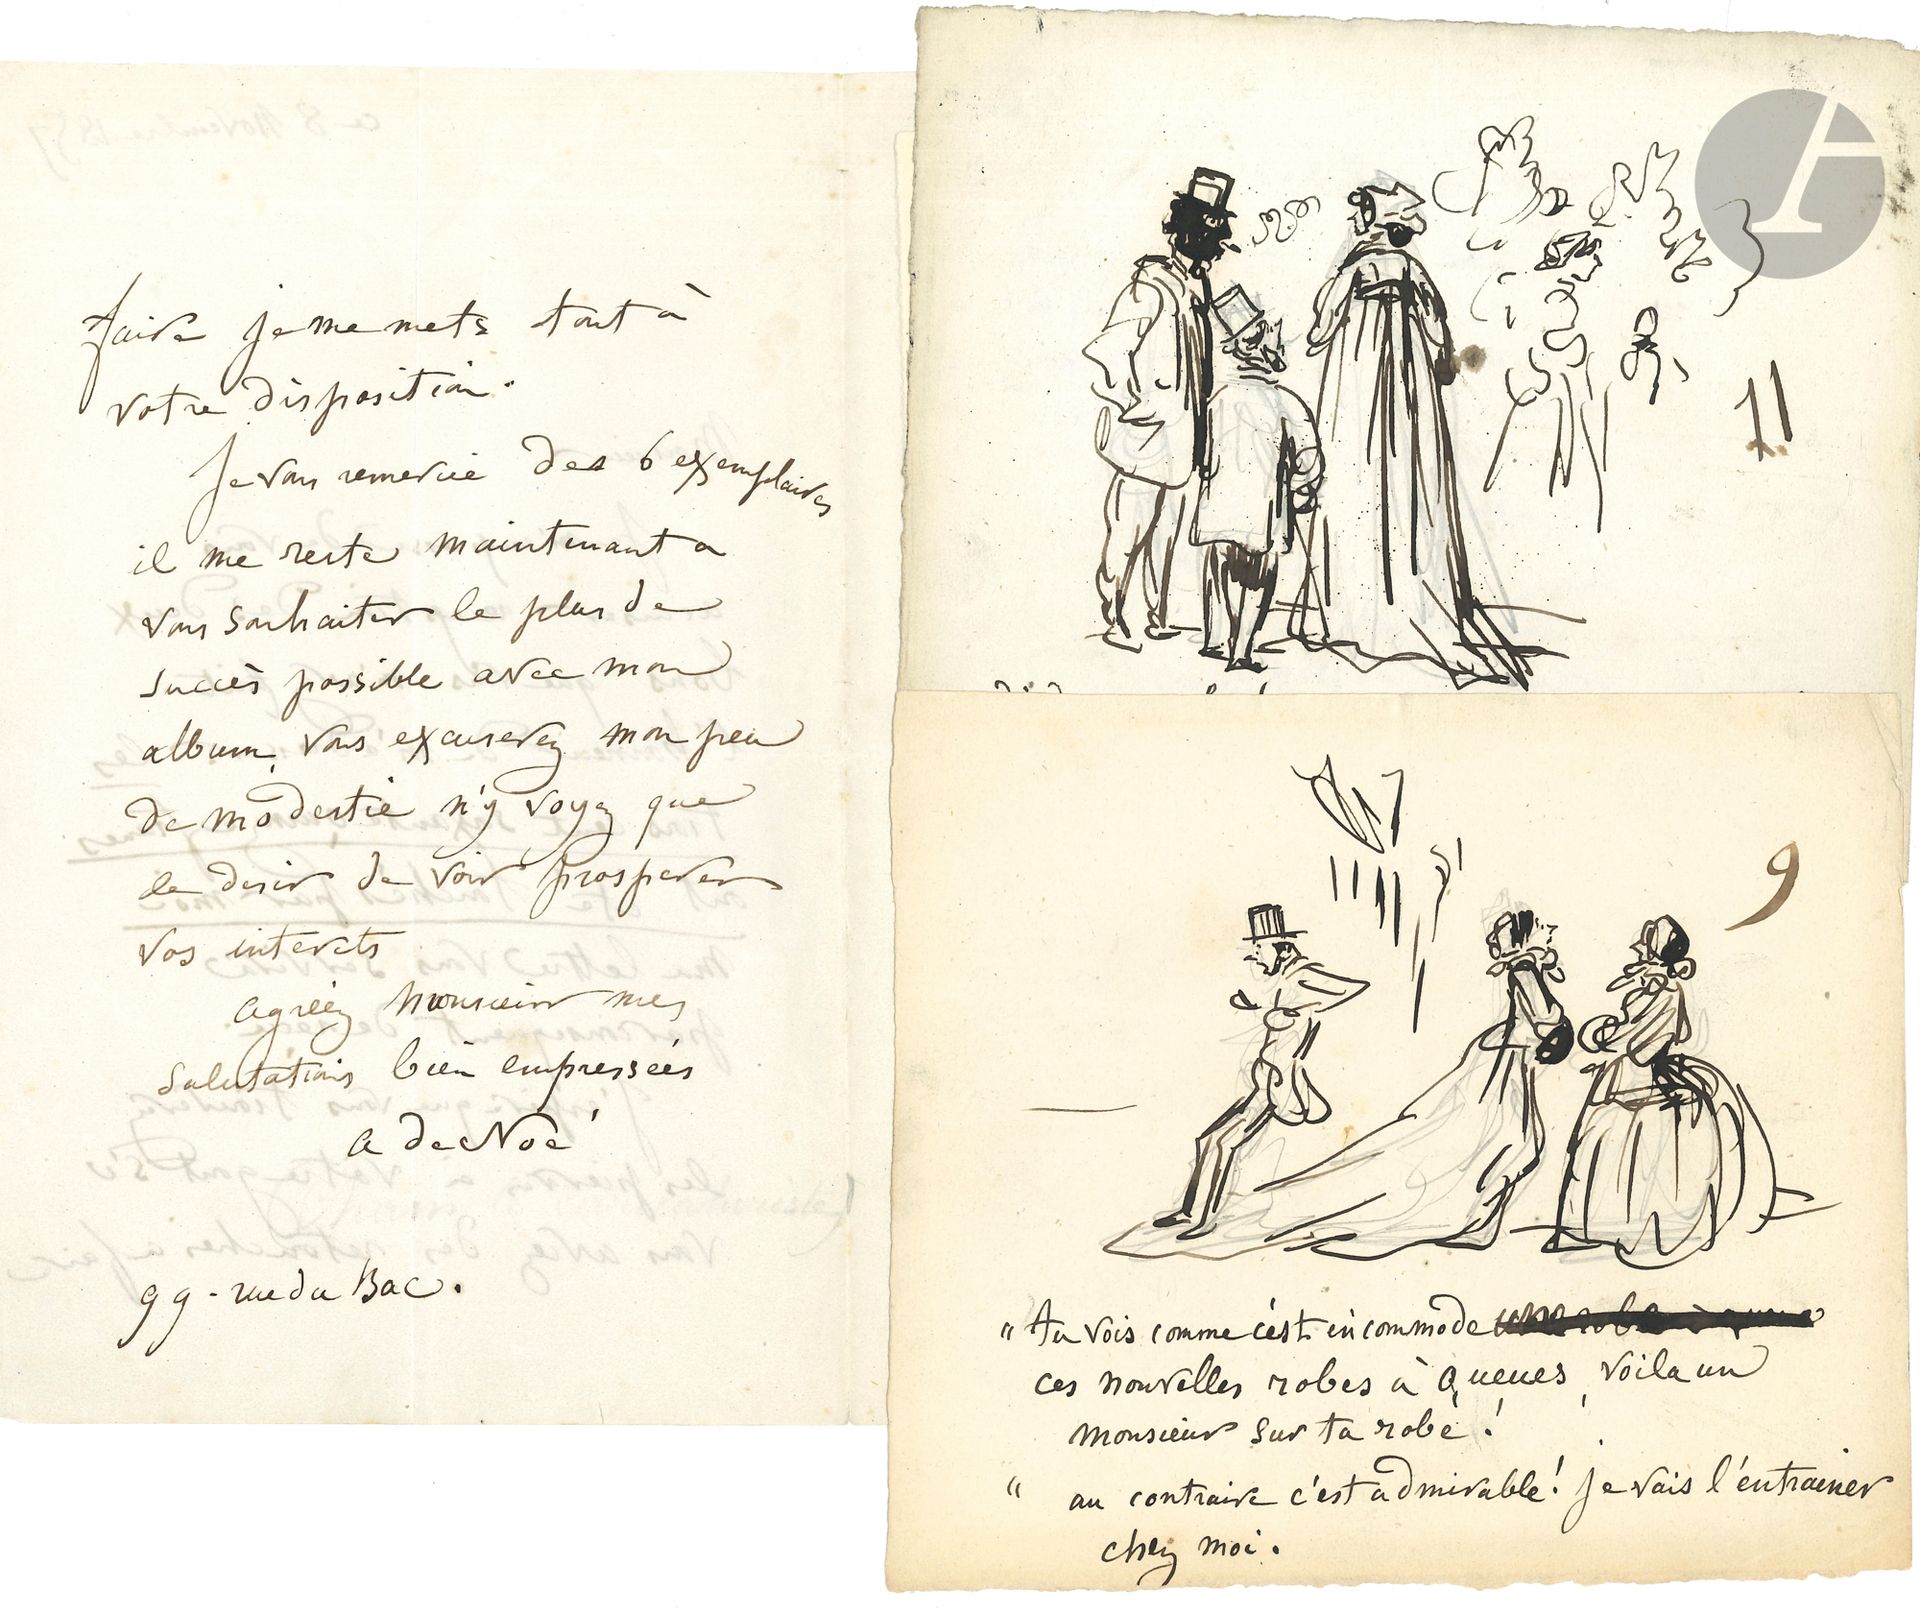 faire je me mets tout à
votre disposition.
Je vous remercie des 6 exemplaires
il me reste maintenant a
vous souhaiter le plus de
succès possible avec mon
album, vous excuserez mon peu
de modestie n'y voyez que
le desir de voir prosperer
vos interets
agréez Monsieur mes
salutations bien empressées
a de Noé
99 - rue du Bac.
11
9
" tu vois comme c'est incommode
ces nouvelles robes à queues, voila un
monsieur sur ta robe !
" au contraire c'est admirable ! je vais l'entrainer
chez moi.